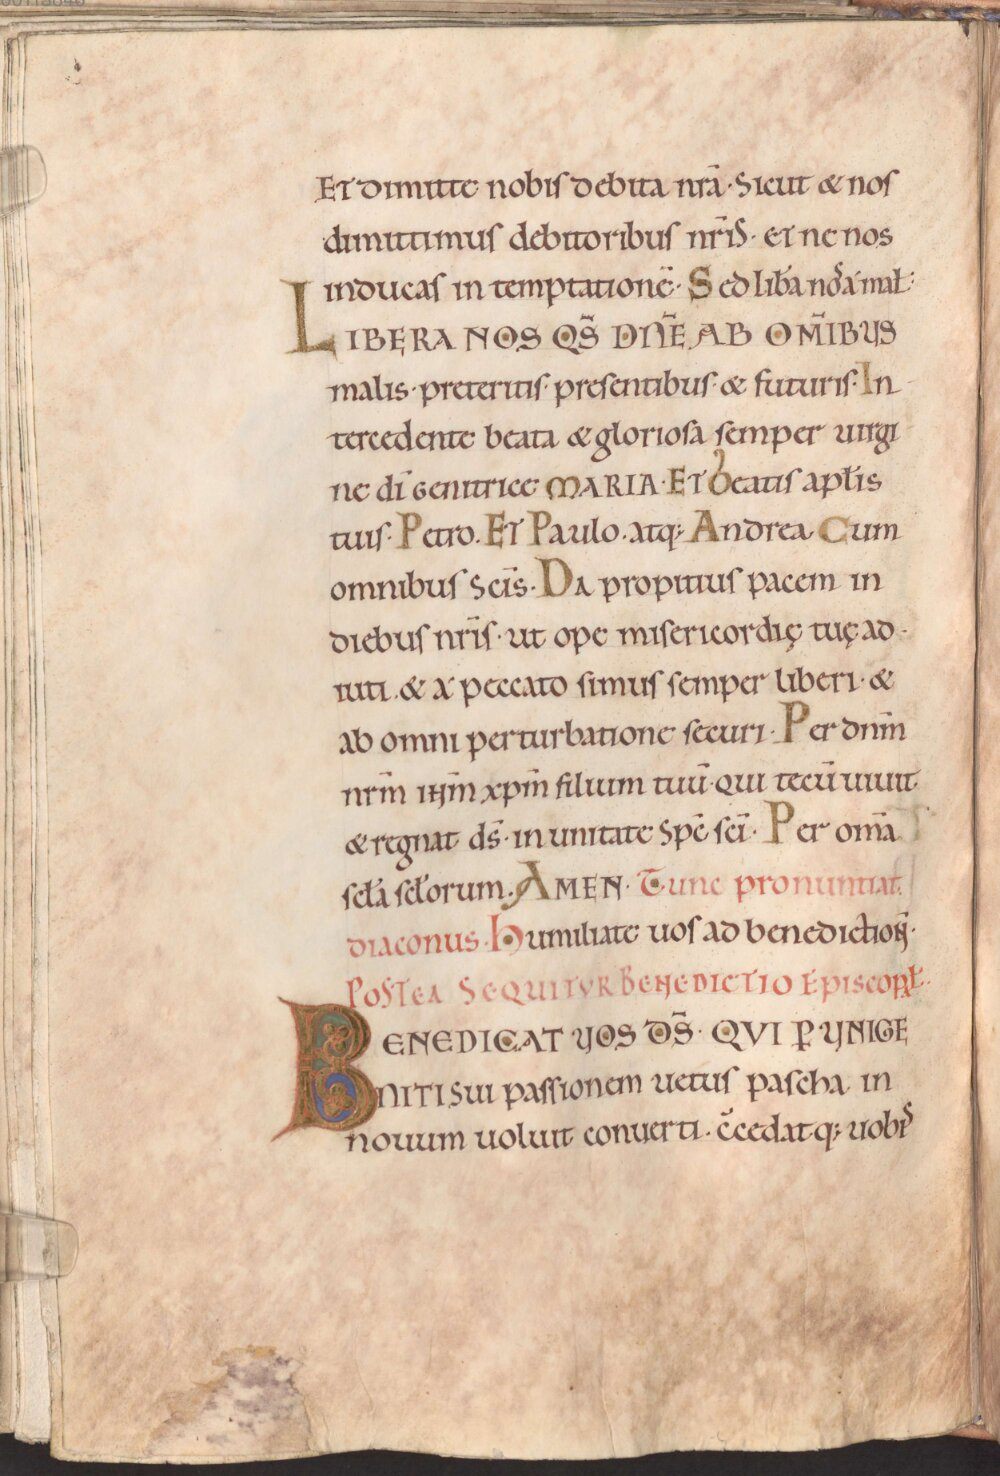 Et dimitte nobis debita nr̄a · Sicut & nos
dimittimus debitoribus nr̄is · et ne nos
inducas in temptationē · Sed lib̄a nos a mal̄ ·
LIBERA NOS QS̄ DN̄E AB OM̄IBUS
malis · preteritis · presentibus · & futuris · In
tercedente beata & gloriosa semper uirgi
ne dī Genitrice MARIA · Et beatis apl̄is
tuis · Petro · Et Paulo · atq; Andrea Cum
omnibus Scīs · Da propitius pacem in
diebus nr̄is · ut ope misericordię tuę ad
iuti · & a peccato simus semper liberi · &
ab omni perturbatione securi · Per dnm̄
nrm̄ ihm̄ xpm̄ filium tuū · qui tecū uiuit
& regnat ds̄ · in unitate Spc̄ sc̄i · Per om̄a
scl̄a scl̄orum · AMEN · Tunc pronuntiat
diaconus · Humiliate uos ad benediction̄ ·
Postea Sequitur Benedictio Episcopal̄ ·
BENEDICAT VOS DS̄ · QVI P̱ VNIGE
NITI Sui passionem uetus pascha in
nouum uoluit conuerti · c̄cedatq; uobis